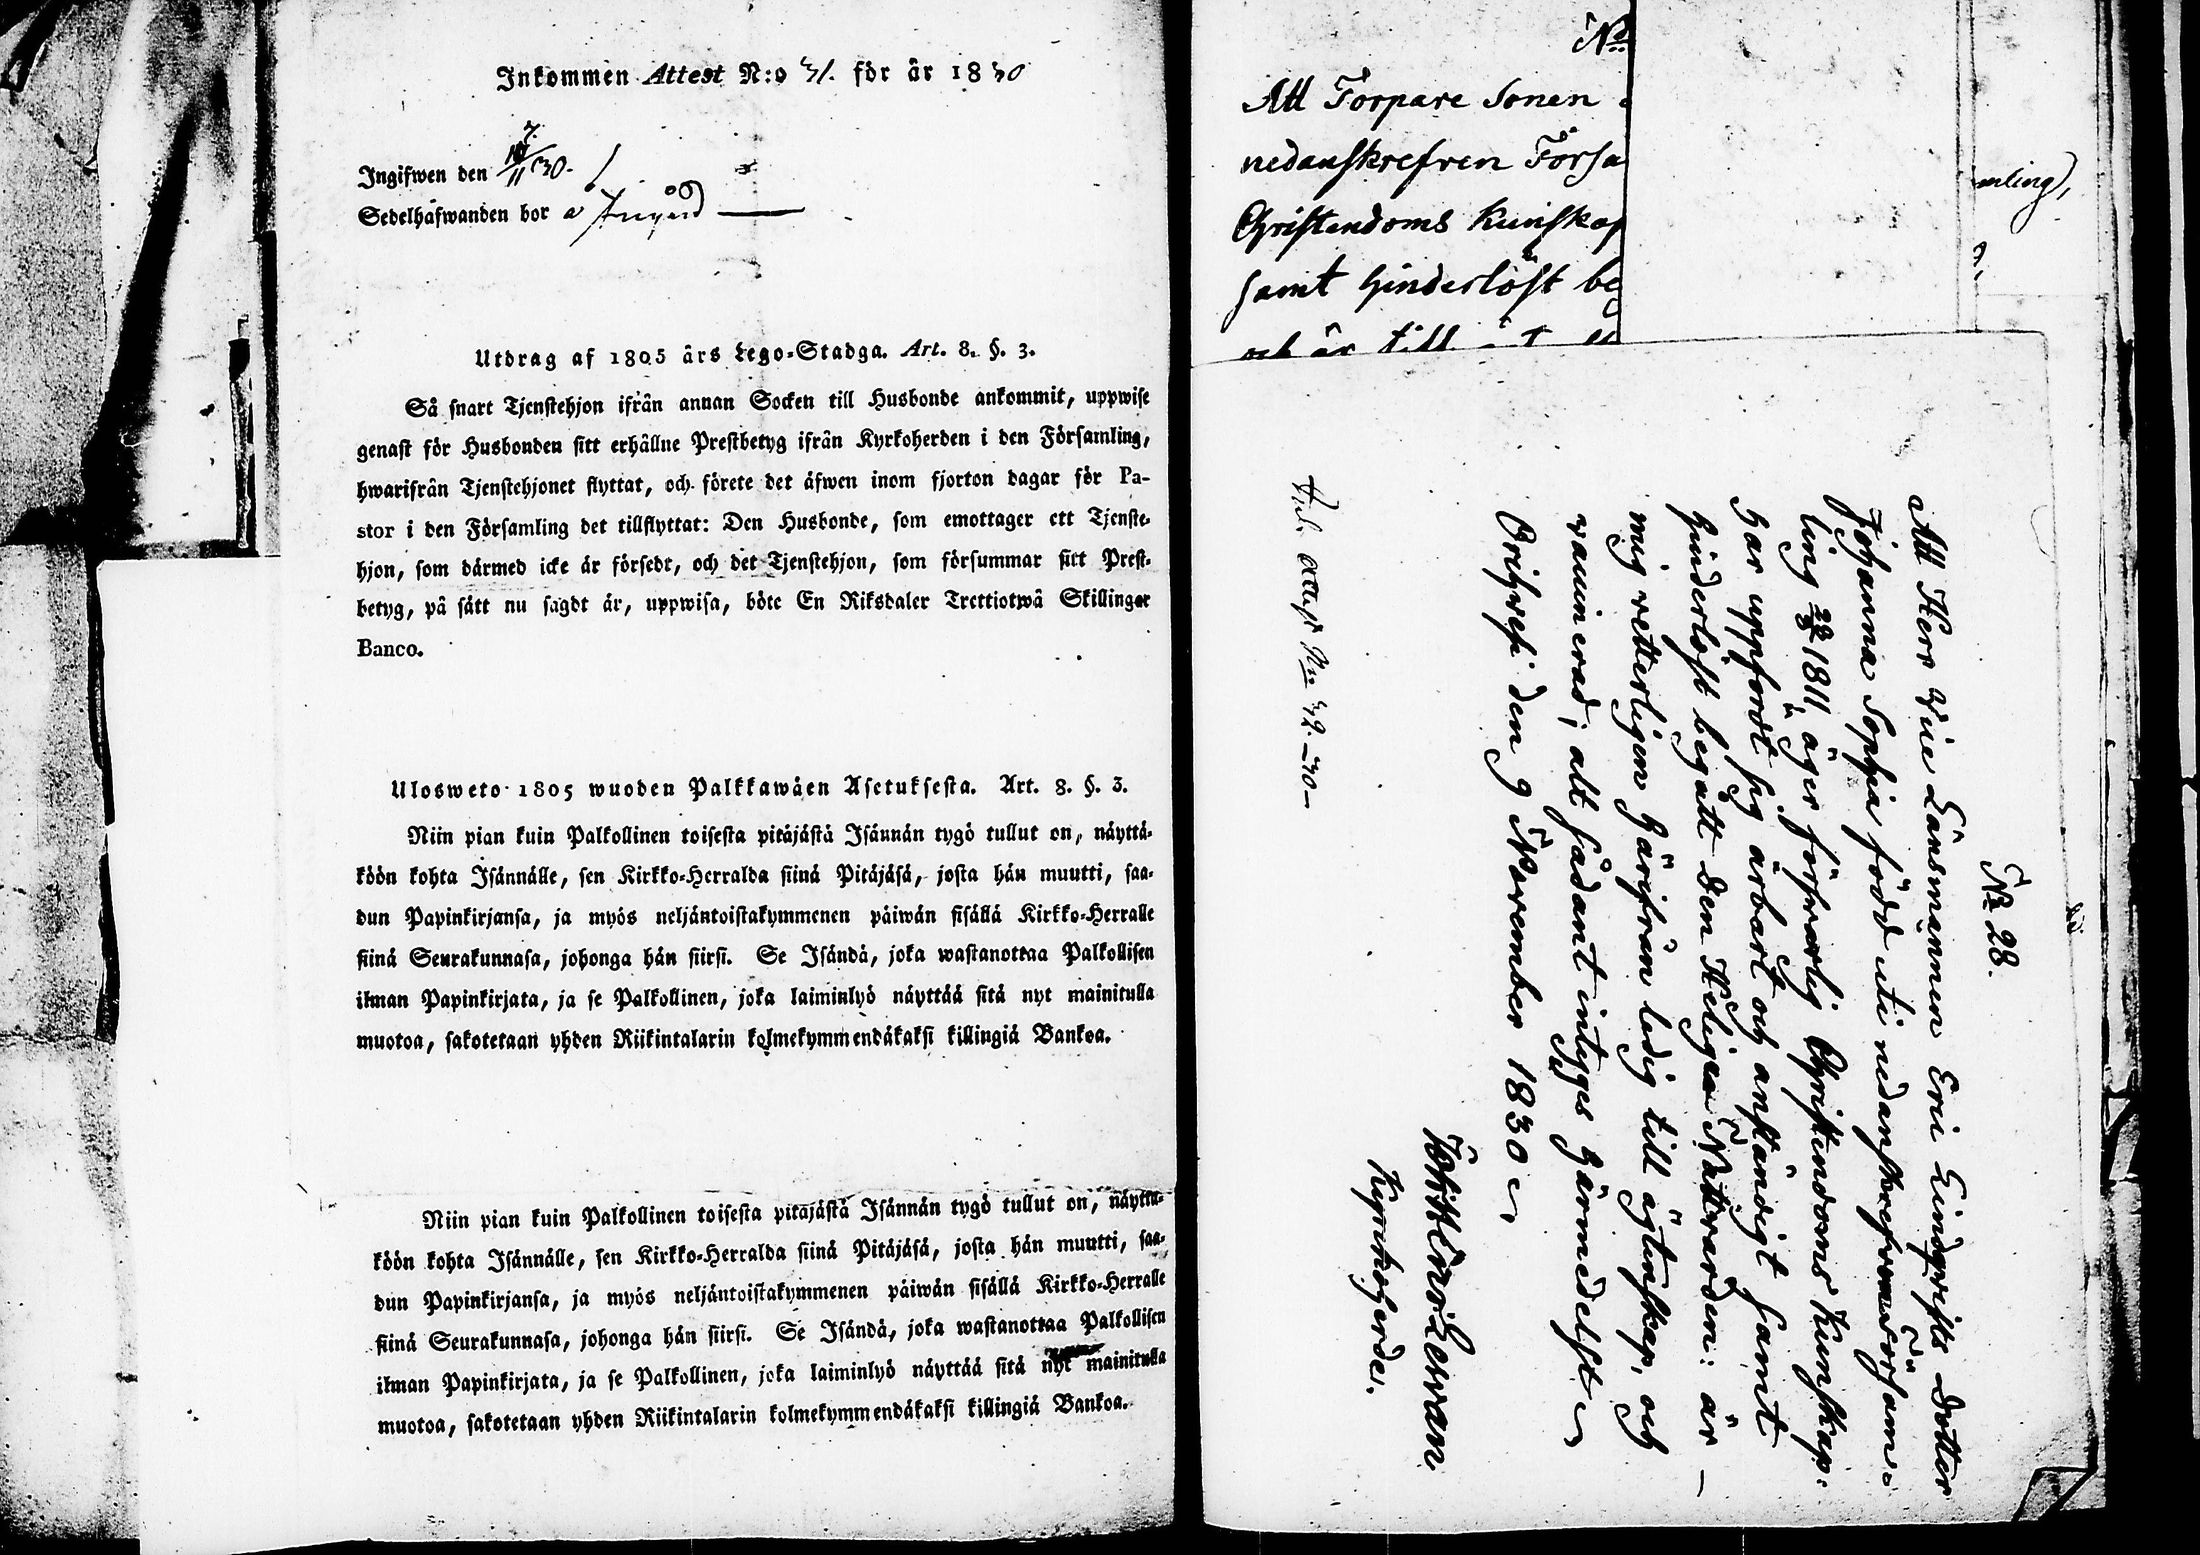 Inkommen Attest N:o 31. för år 1830
Ingifwen den 7/11 30.
Sedelhafwanden bor a
Utdrag af 1805 års Lego-Stadga. Art. 8. §. 3.
Så snart Tjenstehjon ifrån annan Socken till Husbonde ankommit, uppwise
genast för Husbonden sitt erhållne Prestbetyg ifrån Kyrkoherden i den Församling,
hwarifrån Tjenstehjonet flyttat, och förete det äfwen inom fjorton dagar för Pa-
stor i den Församling det tillflyttat: Den Husbonde, som emottager ett Tjenste-
hjon, som därmed icke är försedt, och det Tjenstehjon, som försummar sitt Prest-
betyg, på sätt nu sagdt är, uppwisa, böte En Riksdaler Trettiotwå Skillingar
Banco.
Ulosweto 1805 wuoden Palkkawäen Asetuksesta. Art. 8. §. 3.
Niin pian kuin Palkollinen toisesta pitäjästä Isännän tygö tullut on, näyttä-
köön kohta Isännälle, sen Kirkko-Herralda siinä Pitäjäsä, josta hän muutti, saa-
dun Papinkirjansa, ja myös neljäntoistakymmenen päiwän sisällä Kirkko-Herralle
siinä Seurakunnasa, johonga hän siirsi. Se Isändä, joka wastanottaa Palkollisen
ilman Papinkirjata, ja se Palkollinen, joka laiminlyö näyttää sitä nyt mainitulla
muotoa, sakotetaan yhden Riikintalarin kolmekymmendäkaksi killingiä Bankoa.
Niin pian kuin Palkollinen toisesta pitäjästä Isännän tygö tullut on, näyttä-
köön kohta Isännälle, sen Kirkko-Herralda siinä Pitäjäsä, josta hän muutti, saa-
dun Papinkirjansa, ja myös neljäntoistakymmenen päiwän sisällä Kirkko-Herralle
siinä Seurakunnasa, johonga hän siirsi. Se Isändä, joka wastanottaa Palkollisen
ilman Papinkirjata, ja se Palkollinen, joka laiminlyö näyttää sitä nyt mainitulla
muotoa, sakotetaan yhden Riikintalarin kolmekymmendäkaksi killingiä Bankoa.
No
Att Torpare Sonen
nedanskrefven Försa
Christendoms Kunskap
samt hinderlöst be
och är till
mling,
No 28.
Att Herr Vice Länsmannen Eric Lindqvists dotter
Johanna Sophia född uti nedanskrefven Försam-
ling 23/3 1811, äger förfvarlig Christendoms Kunskap:
har uppfördt sig ärbart och anständigt samt
hinderlöst begått den Heliga Nattvarden: är
mig vetterligen härifrån ledig till ägtenskap, och
vaccinerad; allt sådant intyges härmedelst
Orihvesi den 9 November 1830
Joh: Henr: Cavan
Kyrkoherde.
Ink. attest No 32. 30